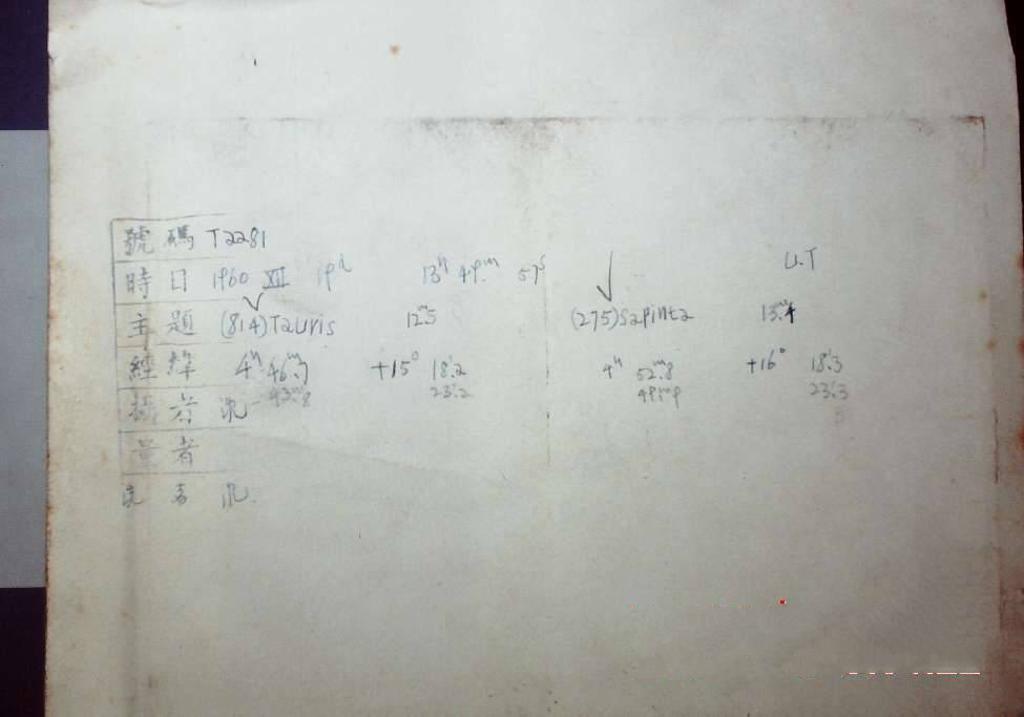 號碼 T2281
時日 1960 XII 19ᵈ 13ʰ 49ᵐ 57ˢ U.T
主題 (814)Tauris 12ᵐ.5 (275)Sapinta 13ᵐ.4
經緯 4ʰ 46ᵐ.7 +15° 18'.2 4ʰ 52ᵐ.8 +16° 18'.3
43ᵐ.8 23'.2 49ᵐ.9 23'.3
者
量者